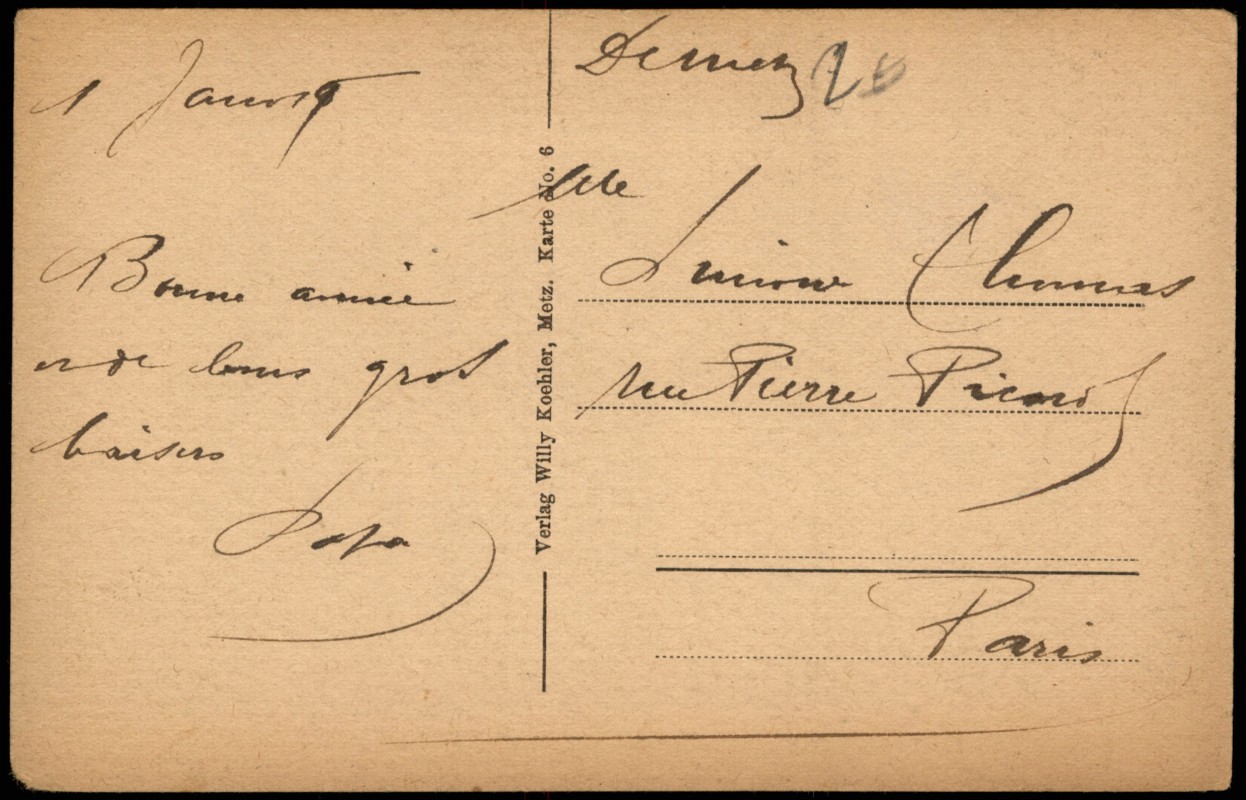 1 Janv 19
Bonne année
et de bons gros
baisers
Papa
Verlag Willy Koehler, Metz. Karte No. 6
20
Mlle
Simone Thomas
rue Pierre Picard
Paris